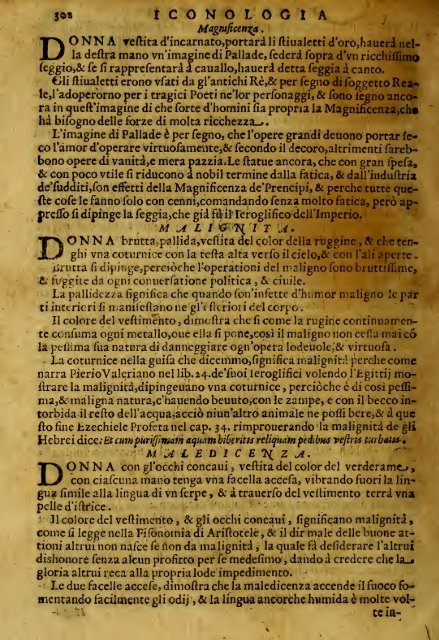 302 ICONOLOGIA
Magnificenza.
DONNA vestita d'incarnato, portarà li stiualetti d'oro, hauerà nel-
la destra mano vn'imagine di Pallade, sederà sopra d'vn ricchissimo
seggio, & se si rappresentarà à cauallo, hauerà detta seggia à canto.
Gli stiualetti erono vsati da gl'antichi Rè, & per segno di soggetto Rea-
le, l'adoperorno per i tragici Poeti ne'lor personaggi, & sono segno anco-
ra in quest'imagine di che sorte d'homini sia propria la Magnificenza, che
hà bisogno delle forze di molta ricchezza.
L'imagine di Pallade è per segno, che l'opere grandi deuono portar se-
co l'amor d'operare virtuosamente, & secondo il decoro, altrimenti sareb-
bono opere di vanità, e mera pazzia. Le statue ancora, che con gran spesa,
& con poco vtile si riducono à nobil termine dalla fatica, & dall'industria
de'sudditi, son effetti della Magnificenza de'Prencipi, & perche tutte que-
ste cose le fanno solo con cenni, comandando senza molto fatica, però ap-
presso si dipinge la seggia, che già fù il Ieroglifico dell'Imperio.
MALIGNITA.
DONNA brutta, pallida, vestita del color della ruggine, & che ten-
ghi vna coturnice con la testa alta verso il cielo, & con l'ali aperte.
Brutta si dipinge, perciòche l'operationi del maligno sono bruttissime,
& fuggite da ogni conuersatione politica, & ciuile.
La pallidezza significa che quando son'infette d'humor maligno le par
ti interiori si manifestano ne gl'esteriori del corpo.
Il colore del vestimento, dimostra che sì come la rugine continuamen-
te consuma ogni metallo, oue ella si pone, così il maligno non cessa mai cō
la pessima sua natura di danneggiare ogn'opera lodeuole, & virtuosa.
La coturnice nella guisa che dicemmo, significa malignità perche come
narra Pierio Valeriano nel lib. 24. de'suoi Ieroglifici volendo l'Egittij mo-
strare la malignità, dipingeuano vna coturnice, perciòche è di così pessi-
ma, & maligna natura, c'hauendo beuuto, con le zampe, e con il becco in-
torbida il resto dell'acqua, acciò niun'altro animale ne possi bere, & à que
sto fine Ezechiele Profeta nel cap. 34. rimprouerando la malignità de gli
Hebrei dice. Et cum purissimam aquam biberitis reliquam pedibus vestris turbatis.
MALEDICENZA.
DONNA con gl'occhi concaui, vestita del color del verderame,
con ciascuna mano tenga vna facella accesa, vibrando fuori la lin-
gua simile alla lingua di vn serpe, & à trauerso del vestimento terrà vna
pelle d'istrice.
Il colore del vestimento, & gli occhi concaui, significano malignità,
come si legge nella Fisonomia di Aristotele, & il dir male delle buone at-
tioni altrui non nasce se non da malignità, la quale fà desiderare l'altrui
dishonore senza alcun profitto per se medesimo, dando à credere che la
gloria altrui reca alla propria lode impedimento.
Le due facelle accese, dimostra che la maledicenza accende il fuoco fo-
mentando facilmente gli odij, & la lingua ancorche humida è molte vol-
te in-